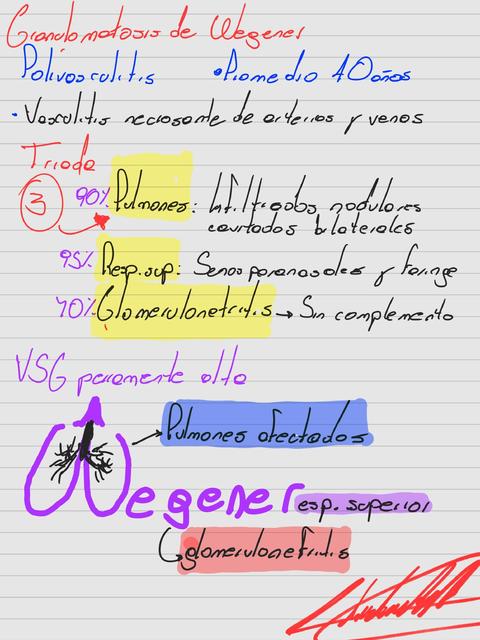 Granulomatosis de Wegener
Polivasculitis •Promedio 40 años
• Vasculitis necrosante de arterias y venas
Triada
3 90% Pulmones: Infiltrados nodulares
cavitados bilaterales
95% Resp.sup: Senos paranasales y faringe
70% Glomerulonefritis → Sin complemento
VSG raramente alta
→ Pulmones afectados
Wegener esp. superior
Gglomerulonefritis